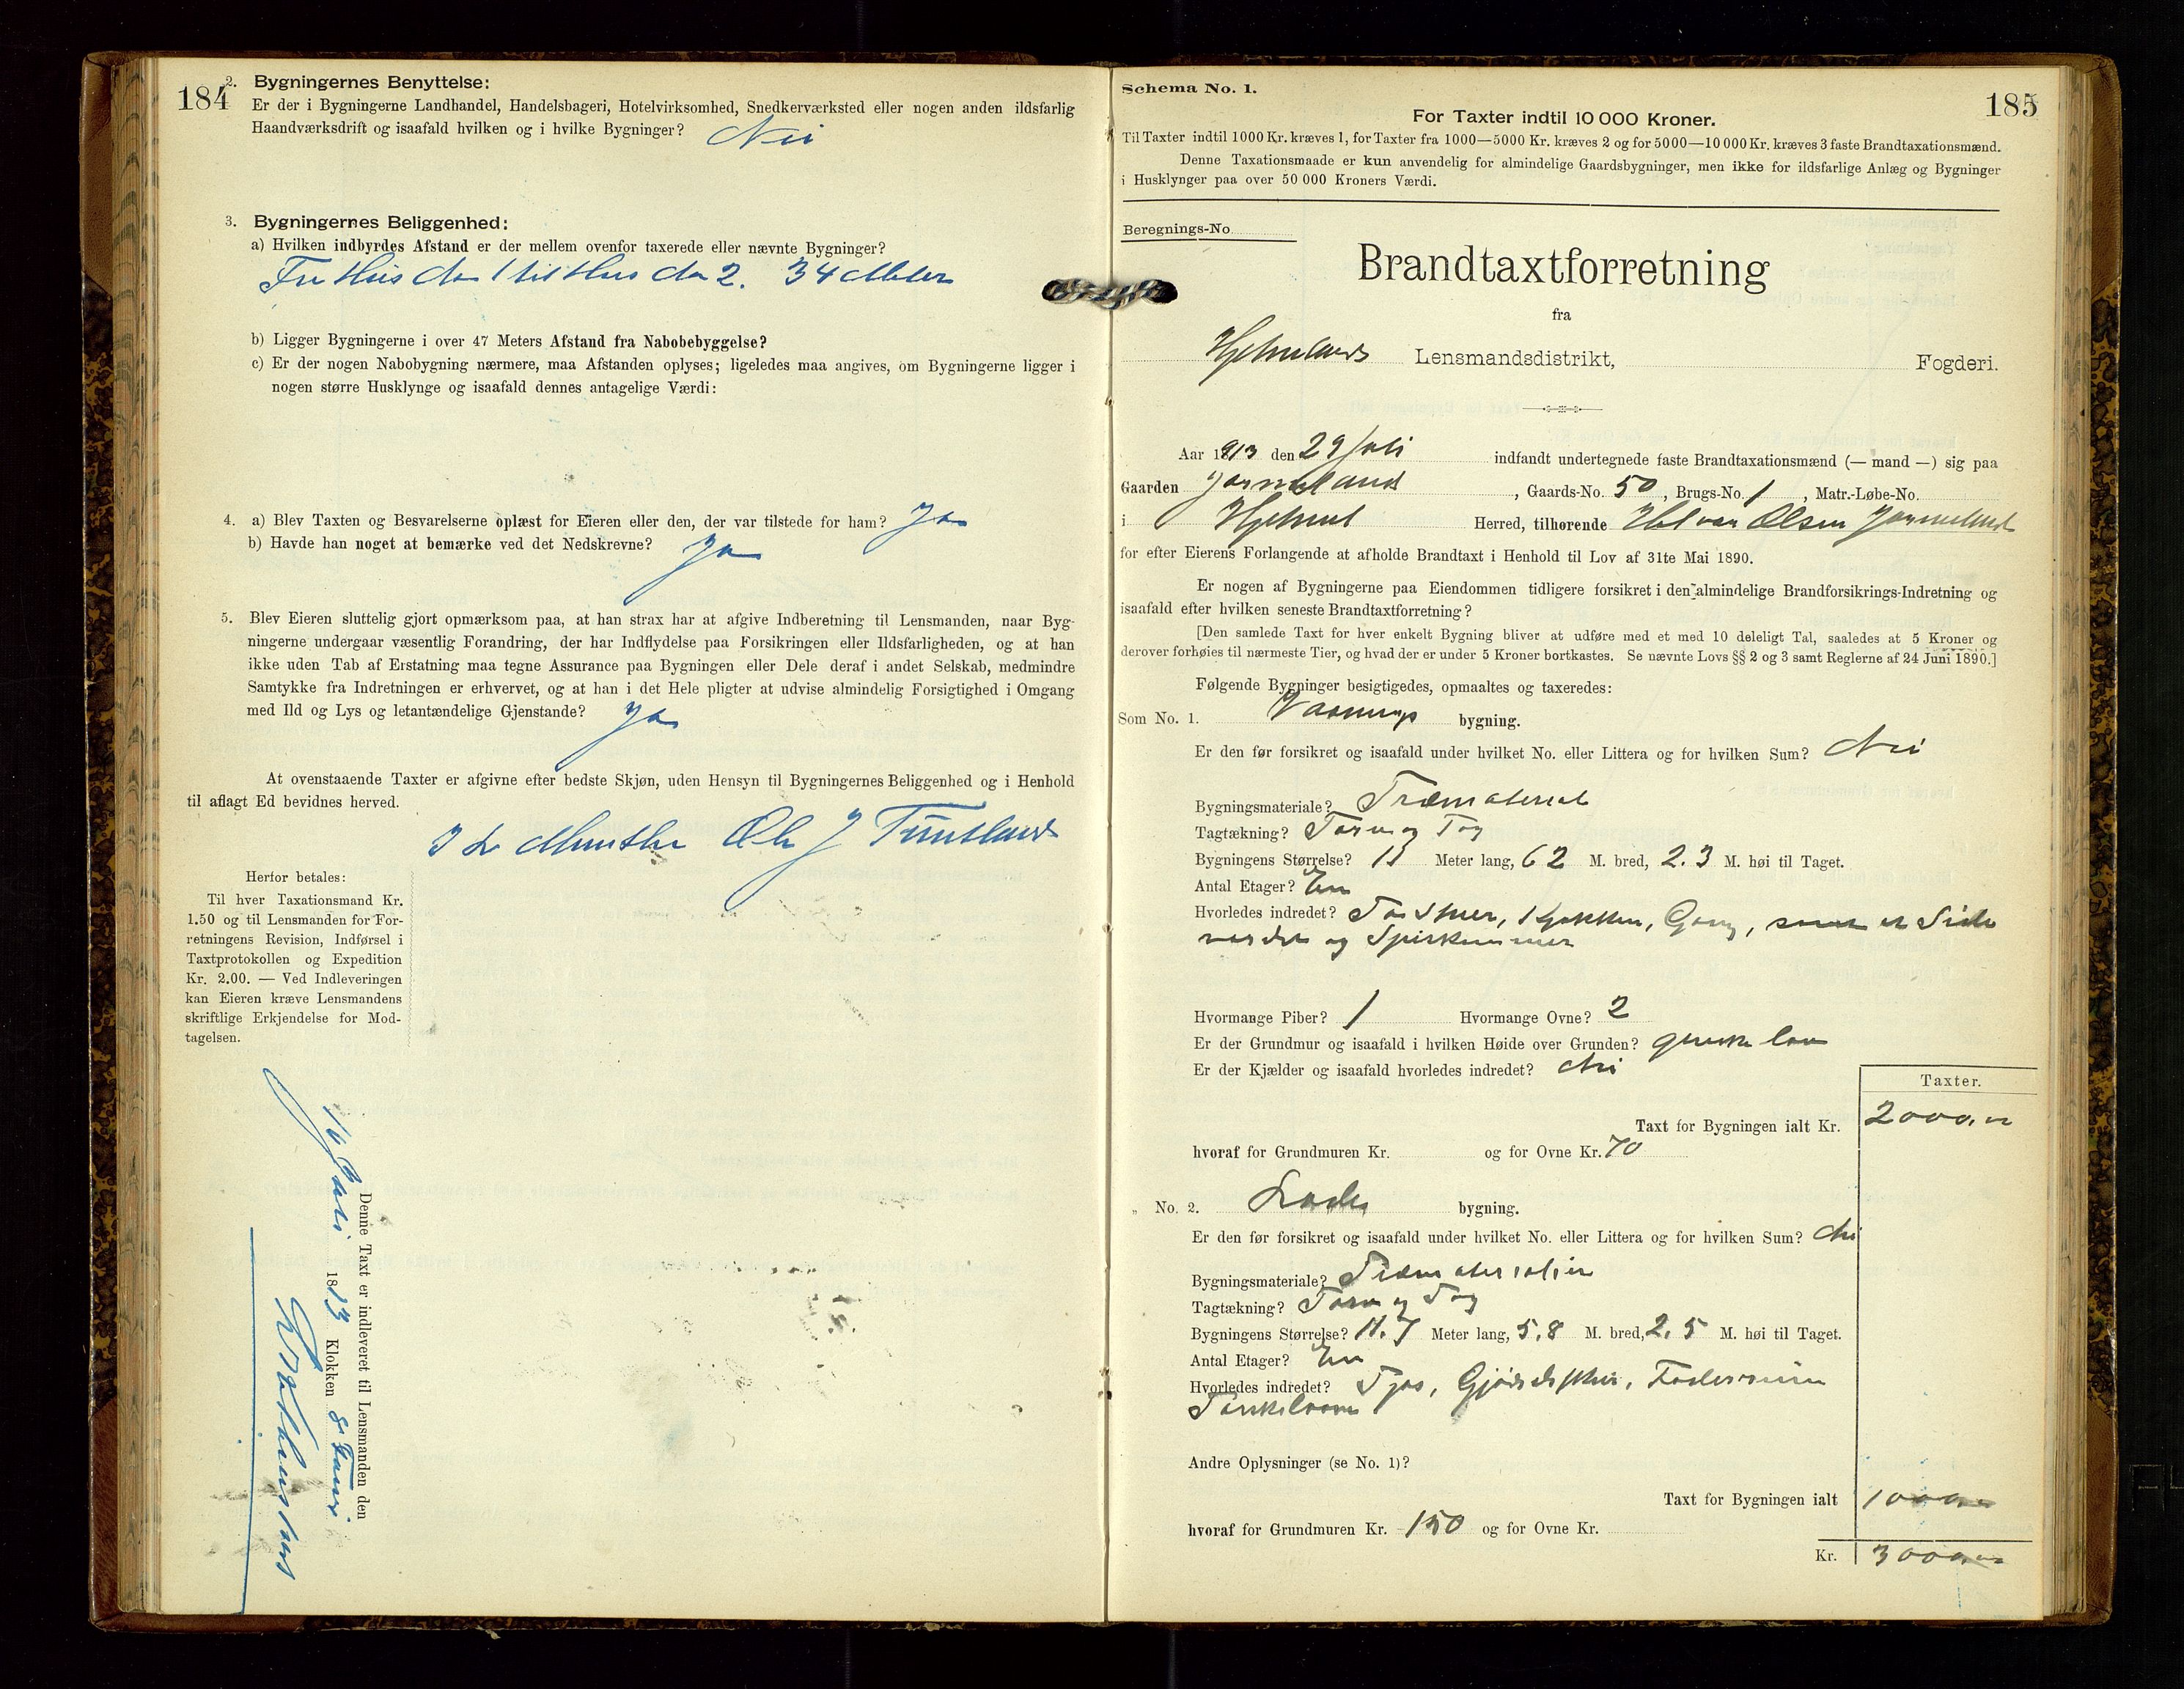 184
2. Bygningernes Benyttelse:
Er der i Bygningerne Landhandel, Handelsbageri, Hotelvirksomhed, Snedkerværksted eller nogen anden ildsfarlig
Haandværksdrift og isaafald hvilken og i hvilke Bygninger? Nei
3. Bygningernes Beliggenhed:
a) Hvilken indbyrdes Afstand er der mellem ovenfor taxerede eller nævnte Bygninger?
Fra Hus No 1 til Hus No 2. 34 Meter
b) Ligger Bygningerne i over 47 Meters Afstand fra Nabobebyggelse?
c) Er der nogen Nabobygning nærmere, maa Afstanden oplyses; ligeledes maa angives, om Bygningerne ligger i
nogen større Husklynge og isaafald dennes antagelige Værdi:
4. a) Blev Taxten og Besvarelserne oplæst for Eieren eller den, der var tilstede for ham? Ja
b) Havde han noget at bemærke ved det Nedskrevne? Ja
5. Blev Eieren sluttelig gjort opmærksom paa, at han strax har at afgive Indberetning til Lensmanden, naar Byg-
ningerne undergaar væsentlig Forandring, der har Indflydelse paa Forsikringen eller Ildsfarligheden, og at han
ikke uden Tab af Erstatning maa tegne Assurance paa Bygningen eller Dele deraf i andet Selskab, medmindre
Samtykke fra Indretningen er erhvervet, og at han i det Hele pligter at udvise almindelig Forsigtighed i Omgang
med Ild og Lys og letantændelige Gjenstande? Ja
At ovenstaaende Taxter er afgivne efter bedste Skjøn, uden Hensyn til Bygningernes Beliggenhed og i Henhold
til aflagt Ed bevidnes herved.
Ole J
Herfor betales:
Til hver Taxationsmand Kr.
1.50 og til Lensmanden for For-
retningens Revision, Indførsel i
Taxtprotokollen og Expedition
Kr. 2.00. — Ved Indleveringen
kan Eieren kræve Lensmandens
skriftlige Erkjendelse for Mod-
tagelsen.
Denne Taxt er indleveret til Lensmanden den
1913 Klokken 8
185
Schema No. 1.
For Taxter indtil 10 000 Kroner.
Til Taxter indtil 1000 Kr. kræves 1, for Taxter fra 1000—5000 Kr. kræves 2 og for 5000—10 000 Kr. kræves 3 faste Brandtaxationsmænd.
Denne Taxationsmaade er kun anvendelig for almindelige Gaardsbygninger, men ikke for ildsfarlige Anlæg og Bygninger
i Husklynger paa over 50 000 Kroners Værdi.
Beregnings-No.
Brandtaxtforretning
fra
Hjelmelands Lensmandsdistrikt, Fogderi.
Aar 1913 den 29 Juli indfandt undertegnede faste Brandtaxationsmænd (— mand —) sig paa
Gaarden , Gaards-No. 50, Brugs-No. 1, Matr.-Løbe-No.
i Hjelmel Herred, tilhørende Olsen
for efter Eierens Forlangende at afholde Brandtaxt i Henhold til Lov af 31te Mai 1890.
Er nogen af Bygningerne paa Eiendommen tidligere forsikret i den almindelige Brandforsikrings-Indretning og
isaafald efter hvilken seneste Brandtaxtforretning?
[Den samlede Taxt for hver enkelt Bygning bliver at udføre med et med 10 deleligt Tal, saaledes at 5 Kroner og
derover forhøies til nærmeste Tier, og hvad der er under 5 Kroner bortkastes. Se nævnte Lovs §§ 2 og 3 samt Reglerne af 24 Juni 1890.]
Følgende Bygninger besigtigedes, opmaaltes og taxeredes:
Som No. 1. Vaanings bygning.
Er den før forsikret og isaafald under hvilket No. eller Littera og for hvilken Sum? Nei
Bygningsmateriale? Træmaterial
Tagtækning? Torv og Tag
Bygningens Størrelse? Meter lang, 62 M. bred, 2.3 M. høi til Taget.
Antal Etager? En
Hvorledes indredet? To Stuer, Kjøkken, Gang, samt et
og Spiskammer
Hvormange Piber? 1 Hvormange Ovne? 2
Er der Grundmur og isaafald i hvilken Høide over Grunden? ganske lav
Er der Kjælder og isaafald hvorledes indredet? Nei
Taxter.
Taxt for Bygningen ialt Kr. 2000,00
hvoraf for Grundmuren Kr. og for Ovne Kr. 70
„ No. 2. Lade bygning.
Er den før forsikret og isaafald under hvilket No. eller Littera og for hvilken Sum? Nei
Bygningsmateriale? Træmaterialier
Tagtækning? Torv og Tag
Bygningens Størrelse? 11.7 Meter lang, 5,8 M. bred, 2,5 M. høi til Taget.
Antal Etager? En
Hvorledes indredet? Fjøs, Gjødselskur,
Andre Oplysninger (se No. 1)?
Taxt for Bygningen ialt 1000,00
hvoraf for Grundmuren Kr. 150 og for Ovne Kr.
Kr. 3000,00